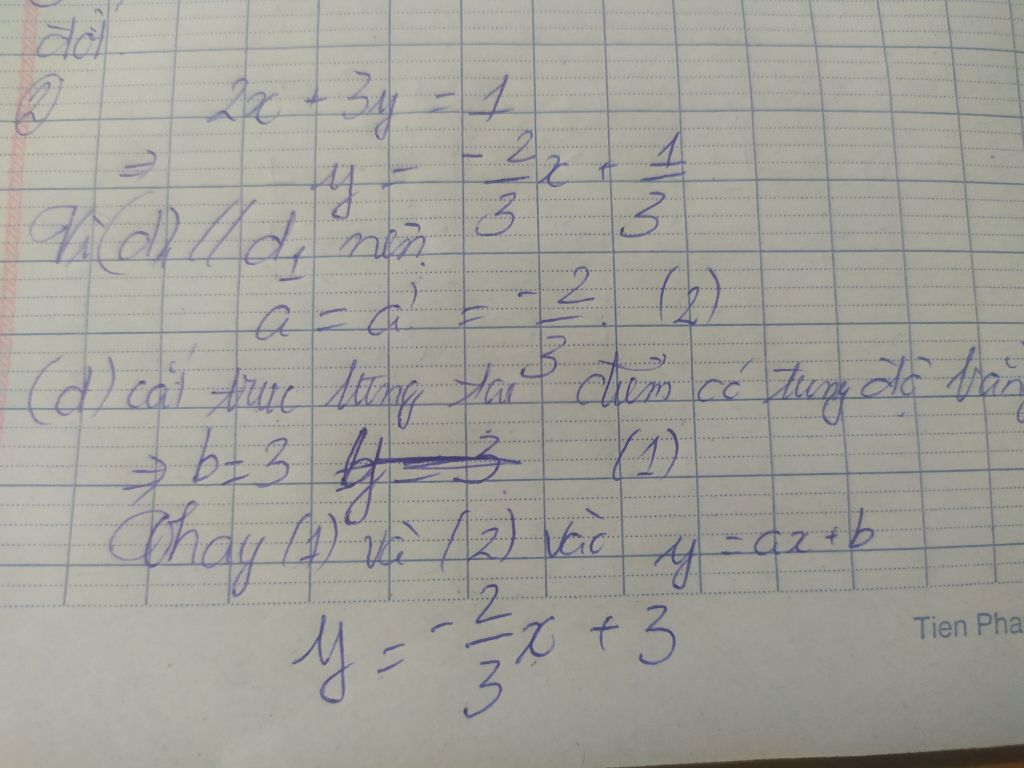 đổi
② 2x + 3y = 1
⇒ y = -2/3 x + 1/3
Vì (d) // d₁ nên
a = a' = -2/3. (2)
(d) cắt trục tung tại điểm có tung độ bằng
⇒ b = 3 y = 3 (1)
Thay (1) và (2) vào y = ax + b
y = -2/3 x + 3
Tien Pha